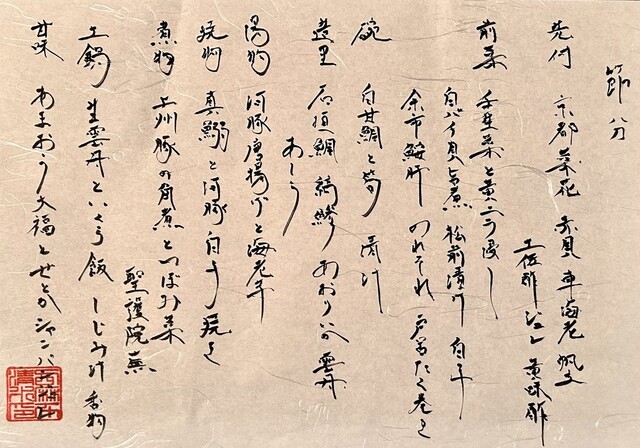 節分
先付 京都菜花 赤貝 車海老 帆立
土佐酢ジュレ 黄味酢
前菜 壬生菜と黄ニラ浸し
白バイ貝旨煮 松前漬け 白子
余市鮟肝 のれそれ たく巻き
椀 白甘鯛と筍 清汁
造里 石垣鯛 縞鯵 あおりいか 雲丹
あしらい
揚物 河豚唐揚げと海老芋
焼物 真鰯と河豚白子焼き
煮物 上州豚の角煮とつぼみ菜
聖護院蕪
土鍋 生雲丹といくら飯 しじみ汁 香物
甘味 あまおう大福とせとかシャンパン